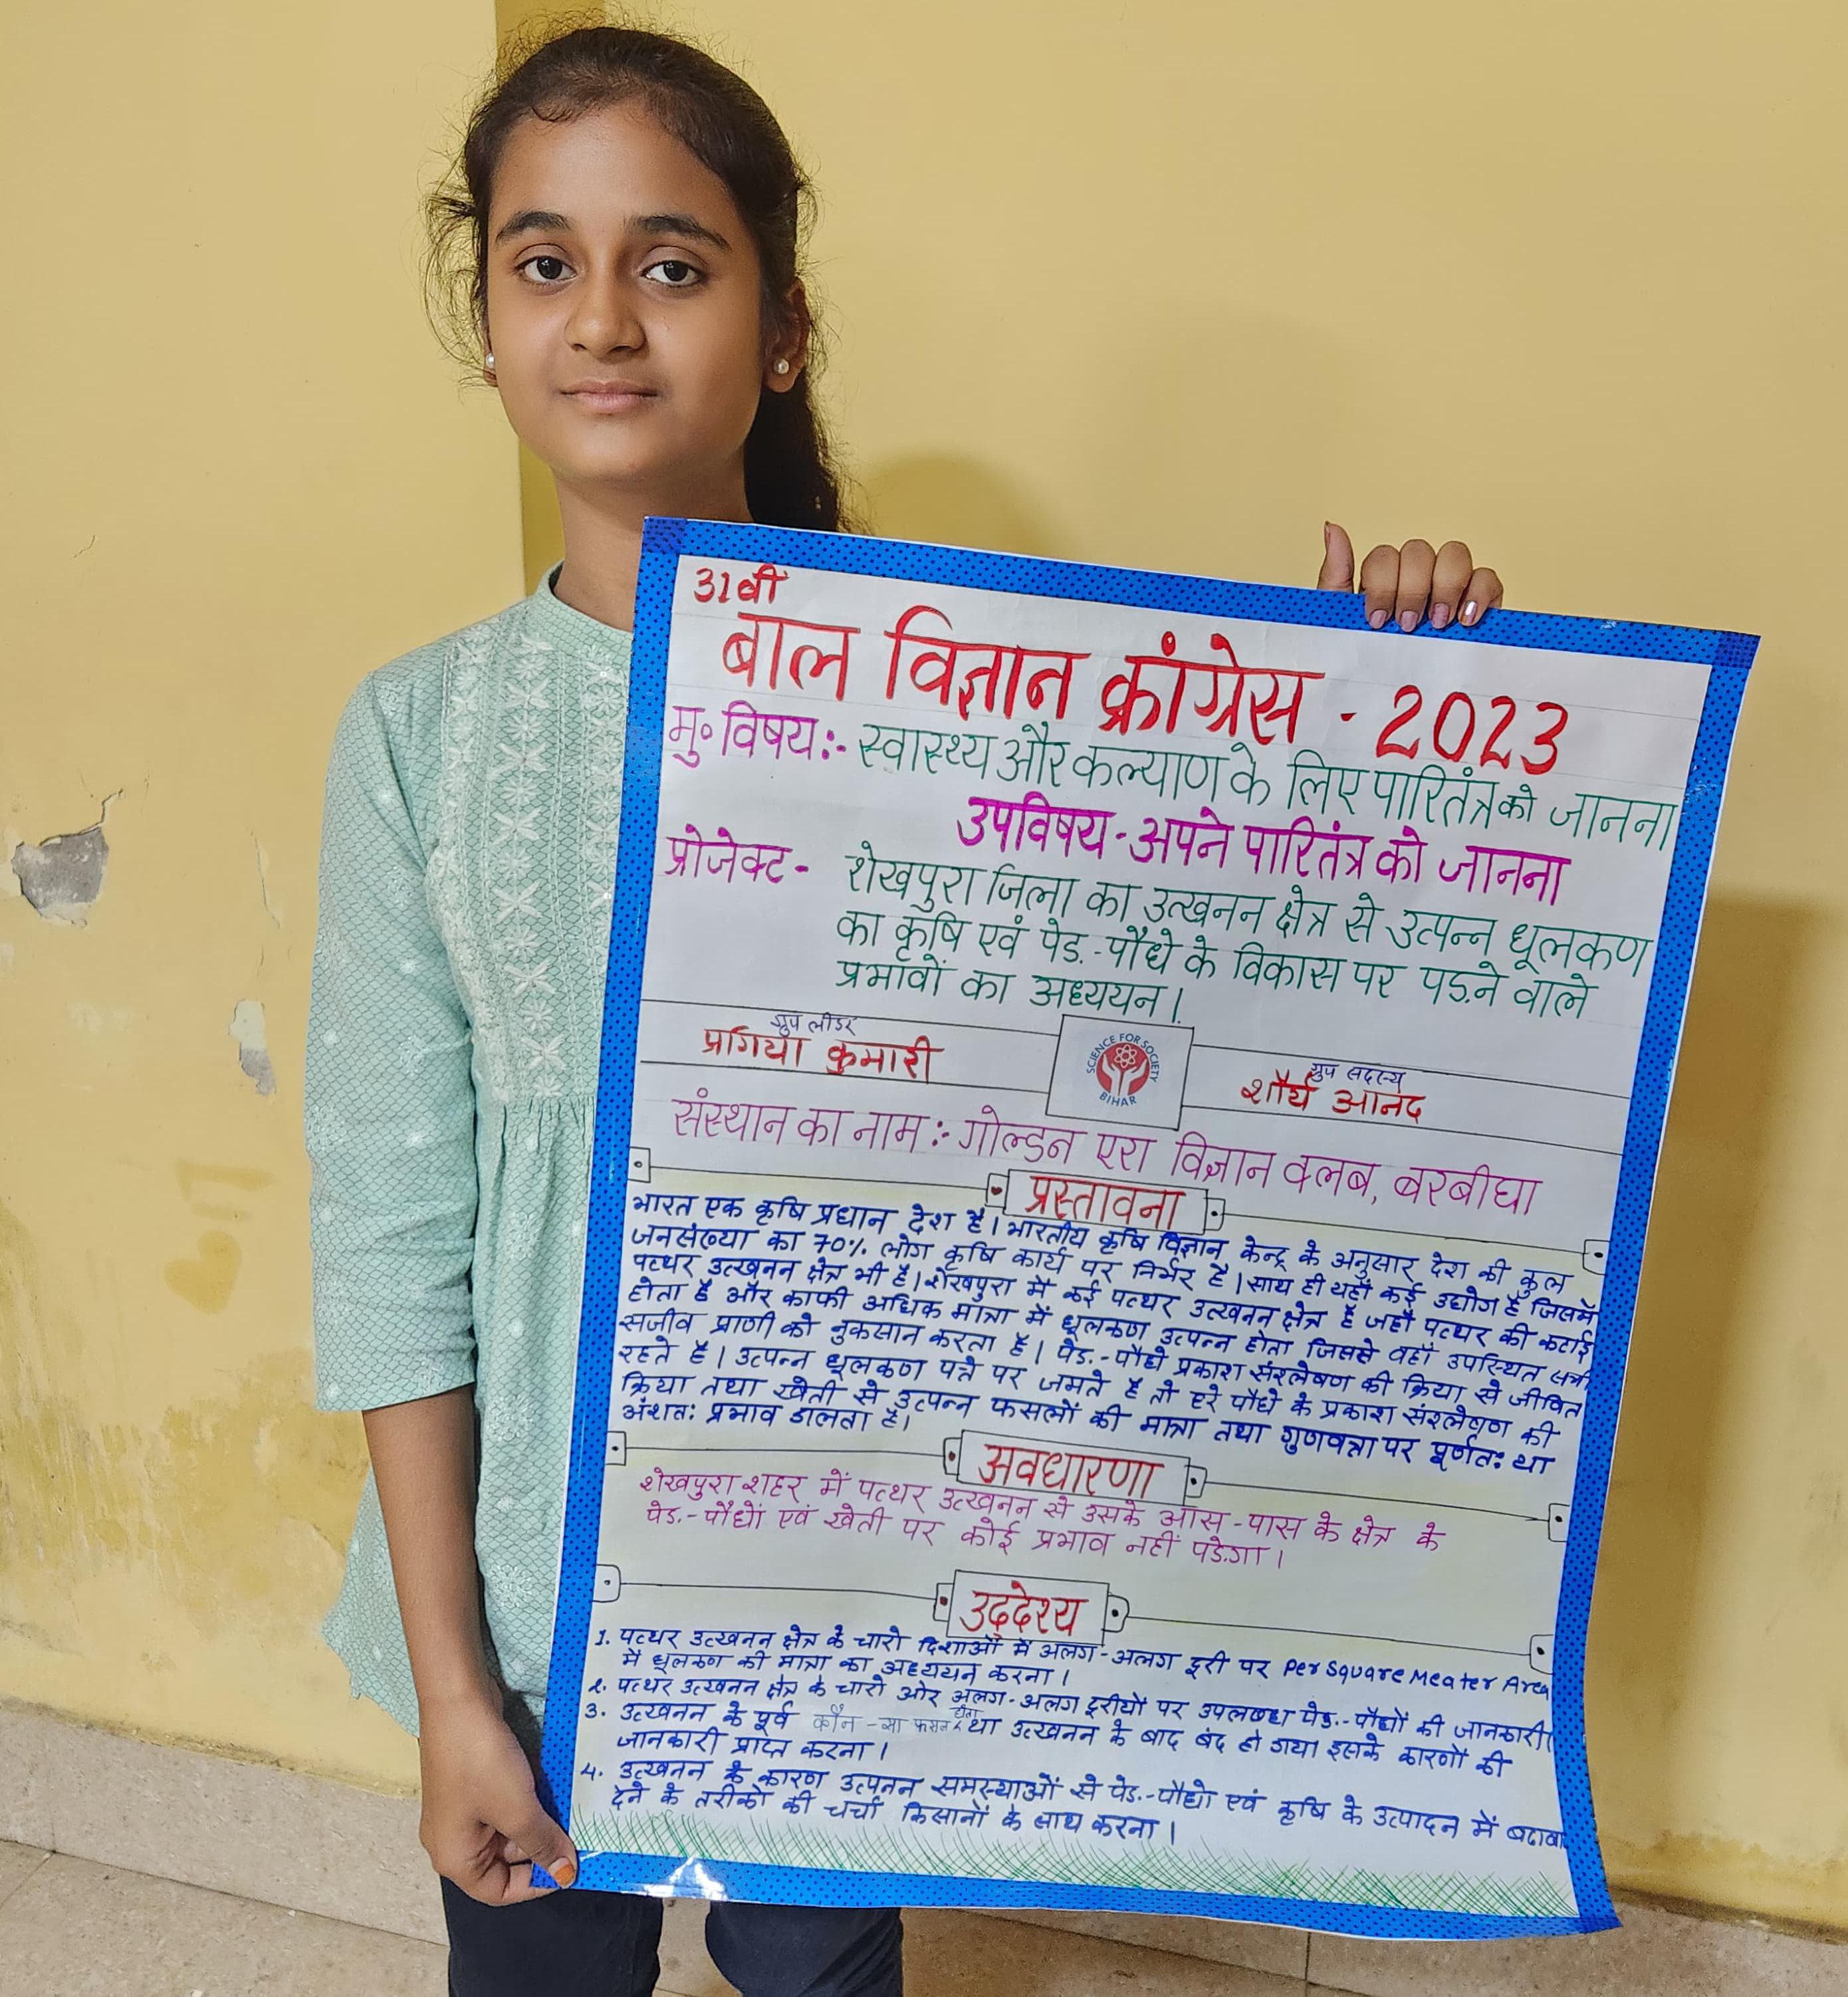 31वीं
बाल विज्ञान क्रांग्रेस - 2023
मु॰ विषय:- स्वास्थ्य और कल्याण के लिए पारितंत्र को जानना
उपविषय - अपने पारितंत्र को जानना
प्रोजेक्ट - शेखपुरा जिला का उत्खनन क्षेत्र से उत्पन्न धूलकण
का कृषि एवं पेड़-पौधे के विकास पर पड़ने वाले
प्रभावों का अध्ययन।
ग्रुप लीडर
प्रगिया कुमारी
SCIENCE FOR SOCIETY
BIHAR
ग्रुप सदस्य
शौर्य आनंद
संस्थान का नाम :- गोल्डन एरा विज्ञान क्लब, बरबीघा
प्रस्तावना
भारत एक कृषि प्रधान देश है। भारतीय कृषि विज्ञान केन्द्र के अनुसार देश की कुल
जनसंख्या का 70% लोग कृषि कार्य पर निर्भर है। साथ ही यहाँ कई उद्योग है जिसमें
पत्थर उत्खनन क्षेत्र भी है। शेखपुरा में कई पत्थर उत्खनन क्षेत्र है जहाँ पत्थर की कटाई
होता है और काफी अधिक मात्रा में धूलकण उत्पन्न होता जिससे वहाँ उपस्थित सभी
सजीव प्राणी को नुकसान करता है। पेड़-पौधे प्रकाश संश्लेषण की क्रिया से जीवित
रहते है। उत्पन्न धूलकण पत्ते पर जमते है तो हरे पौधे के प्रकाश संश्लेषण की
क्रिया तथा खेती से उत्पन्न फसलों की मात्रा तथा गुणवत्ता पर पूर्णतः या
अंशतः प्रभाव डालता है।
अवधारणा
शेखपुरा शहर में पत्थर उत्खनन से उसके आस-पास के क्षेत्र के
पेड़-पौधों एवं खेती पर कोई प्रभाव नहीं पड़ेगा।
उद्देश्य
1. पत्थर उत्खनन क्षेत्र के चारो दिशाओं में अलग-अलग दूरी पर Per Square Meater Area
में धूलकण की मात्रा का अध्ययन करना।
2. पत्थर उत्खनन क्षेत्र के चारो ओर अलग-अलग दूरीयों पर उपलब्ध पेड़-पौधों की जानकारी
3. उत्खनन के पूर्व कौन-सा फसल होता था उत्खनन के बाद बंद हो गया इसके कारणों की
जानकारी प्राप्त करना।
4. उत्खनन के कारण उत्पनन समस्याओं से पेड़-पौधो एवं कृषि के उत्पादन में बढ़ावा
देने के तरीको की चर्चा किसानों के साथ करना।